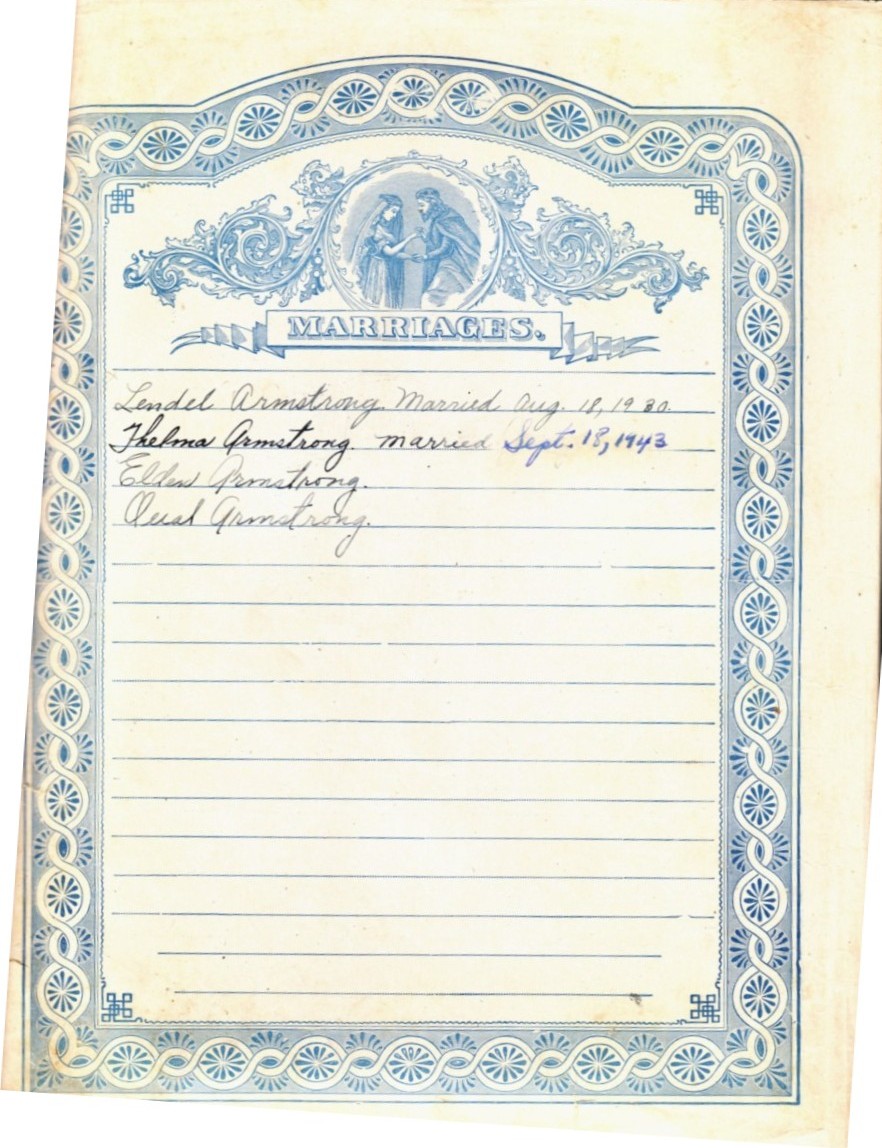 MARRIAGES.
Lendel Armstrong. Married Aug. 18, 1930.
Thelma Armstrong. married Sept. 18, 1943
Elden Armstrong.
Armstrong.